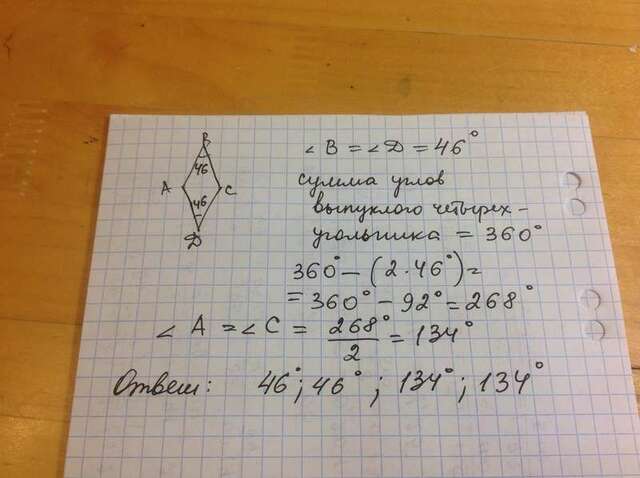 B
46
A
C
46
D
∠ B = ∠ D = 46°
сумма углов
выпуклого четырех-
угольника = 360°
360° - (2·46°) =
= 360° - 92° = 268°
∠ A = ∠ C = 268°/2 = 134°
Ответ: 46°; 46°; 134°; 134°